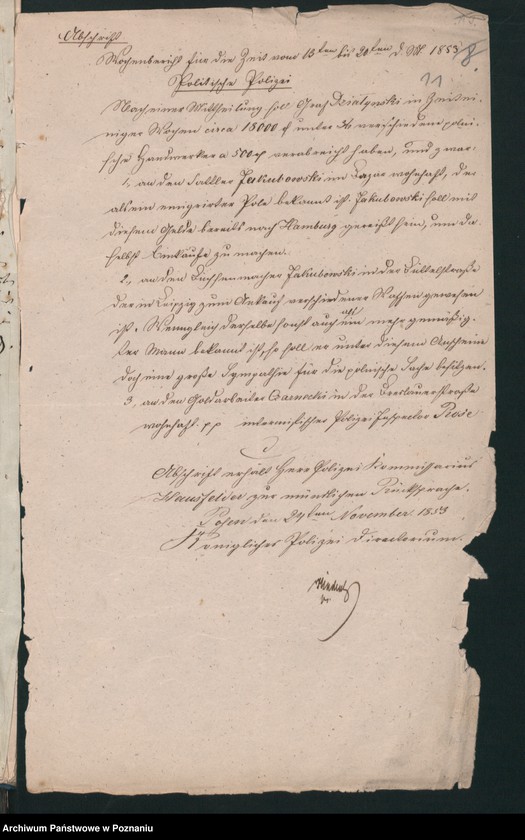 Abschrift
8
Wochenbericht für die Zeit vom 13ten bis 20ten d. Mt. 1853
11
Politische Polizei
Nach einer Mittheilung soll Graf Dzialynski in Zeit ei-
niger Wochen circa 18000 unter 36 verschiedene polni-
sche Handwerker a 500 verabreicht haben, und zwar:
1, an den Sattler Jakubowski im Bazar wohnhaft, der
als ein emigrirter Pole bekannt ist. Jakubowski soll mit
diesem Gelde bereits nach Hamburg gereist sein, um da-
selbst Einkäufe zu machen.
2, an den Büchsenmacher Jakubowski in der Büttelstraße
der in Leipzig zum Ankauf verschiedener Waffen gewesen
ist. Wenngleich derselbe sonst auch als ein mehr gemäßig-
ter Mann bekannt ist, so soll er unter diesem Anscheine
doch eine große Sympathie für die polnische Sache besitzen.
3, an den Goldarbeiter Czarnecki in der Breslauerstraße
wohnhaft. pp interimistischer Polizei Inspector Rose
Abschrift erhält Herr Polizei Kommissarius
Hausfelder zur mündlichen Rücksprache.
Posen den 24ten November 1853
Königliches Polizei Directorium.
Archiwum Państwowe w Poznaniu